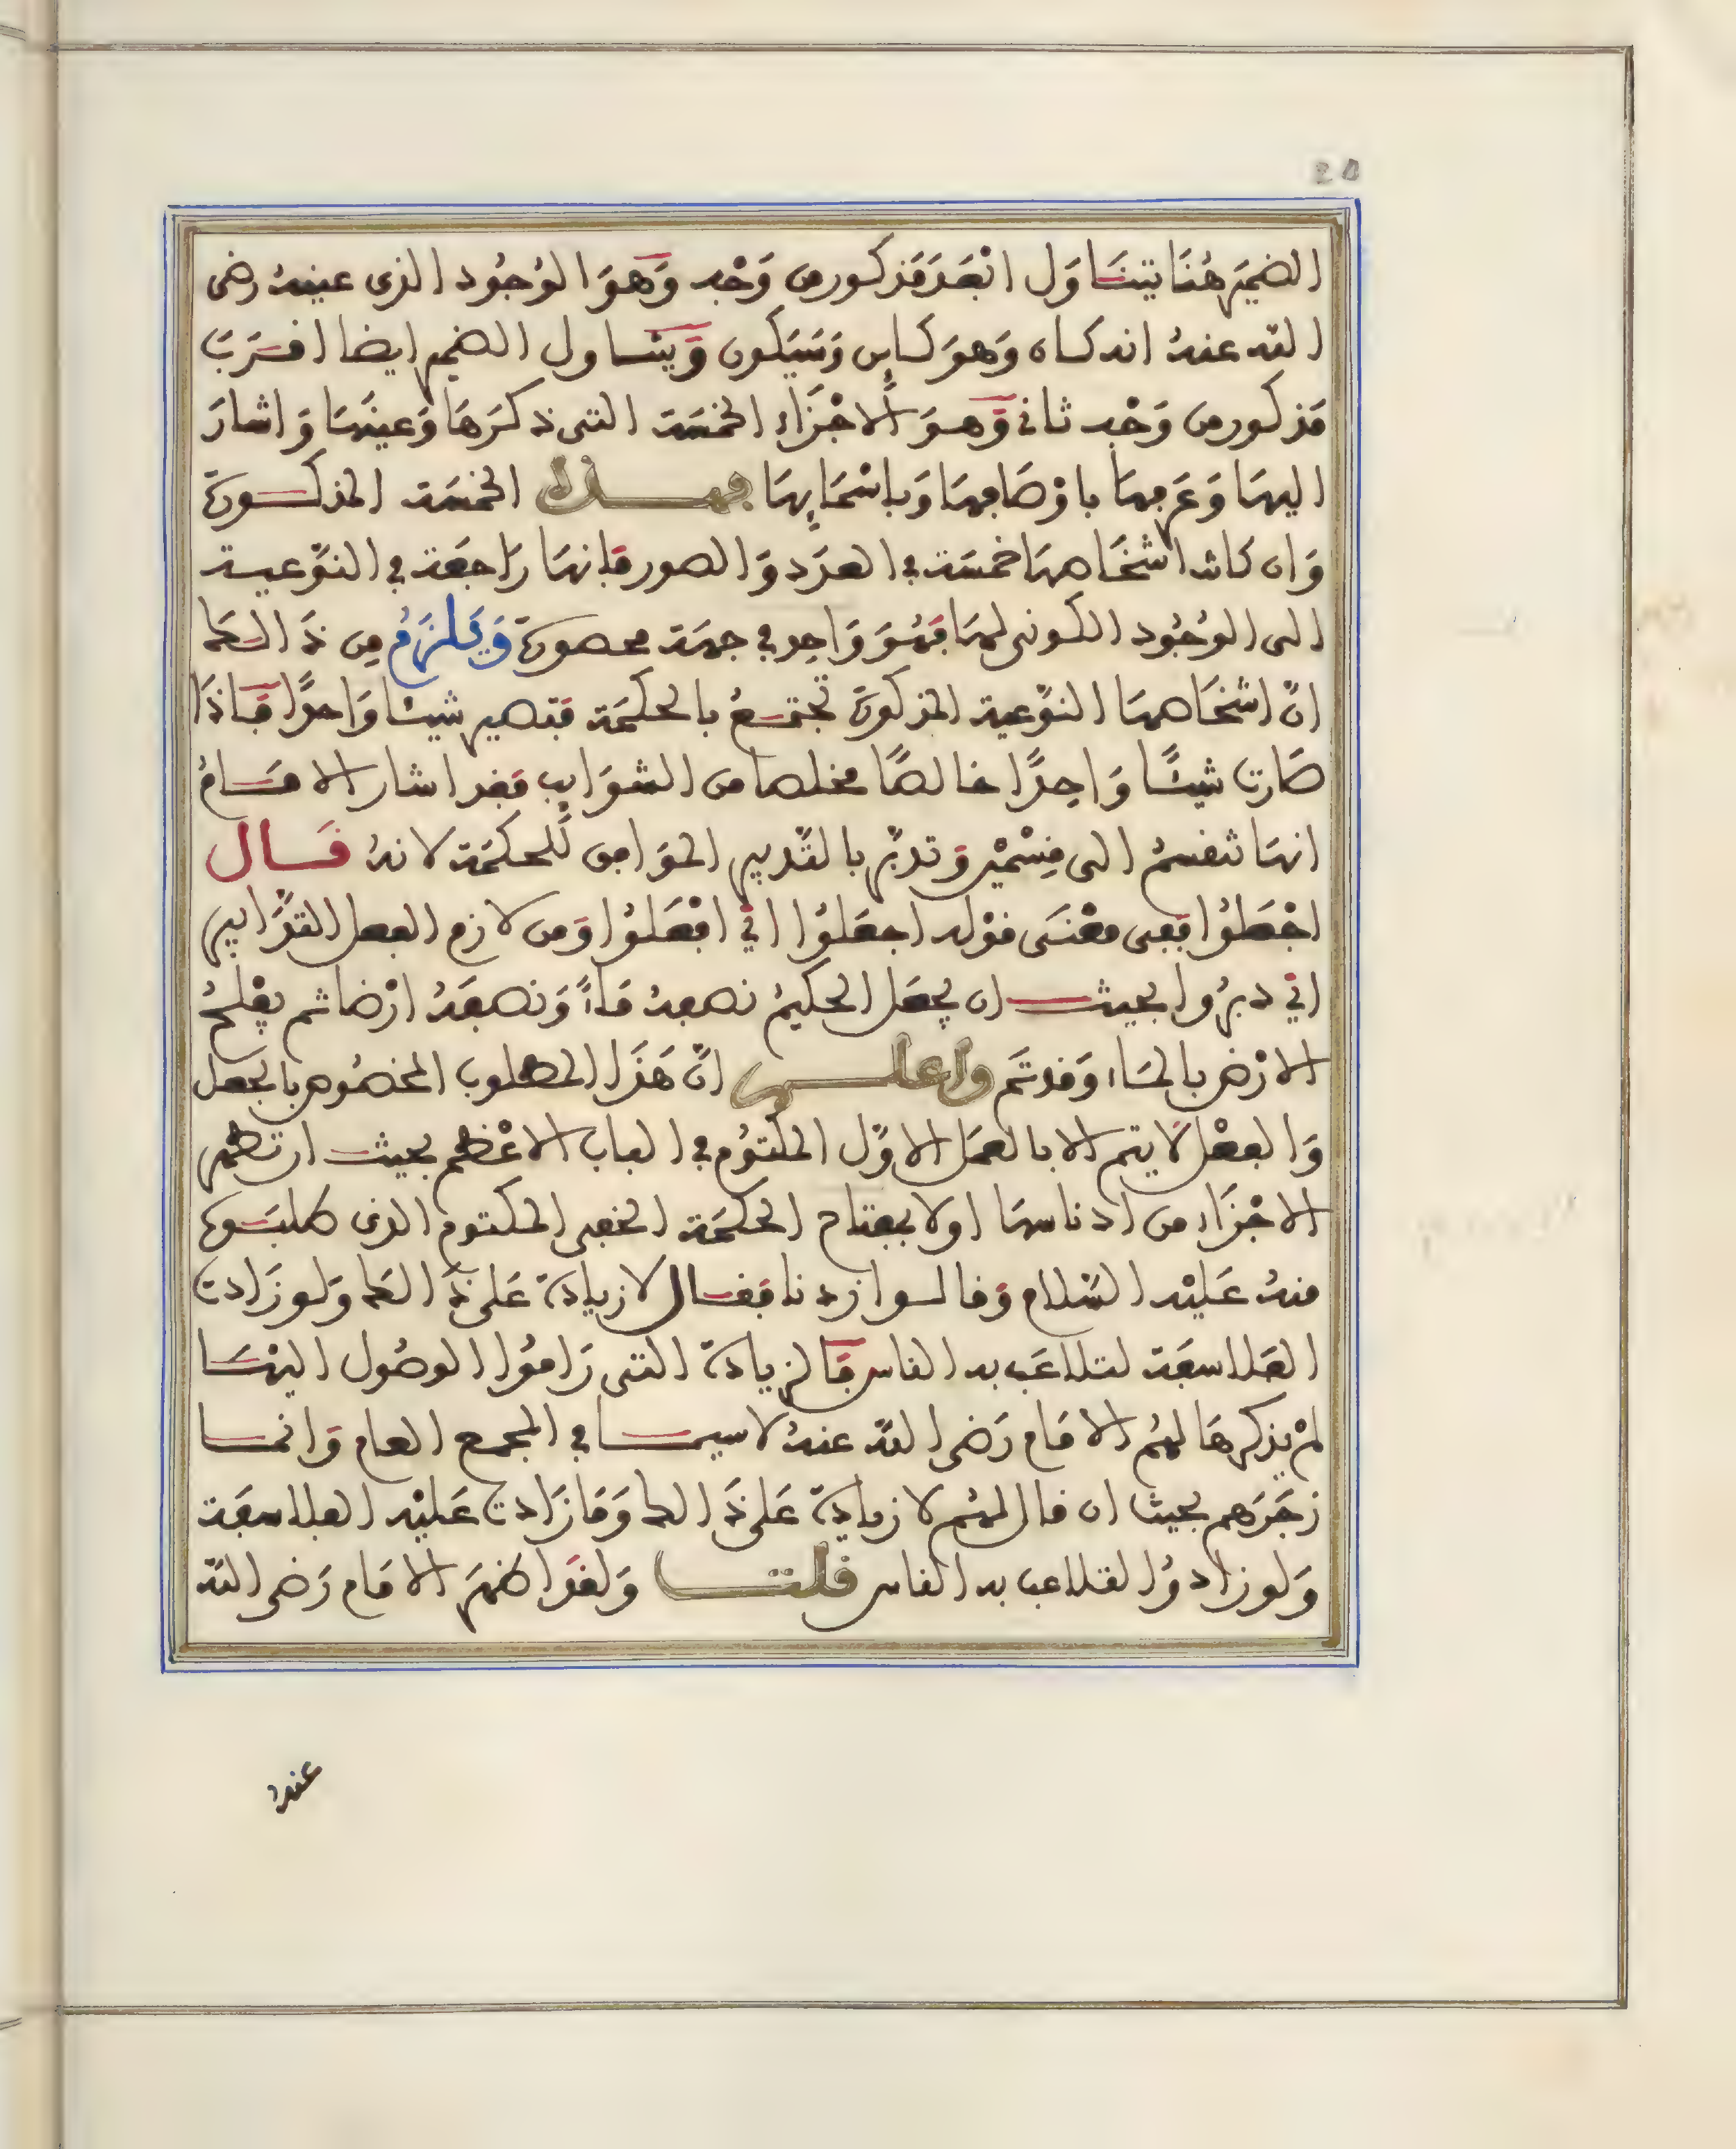 20
الضمير هُنَا يتنَاوَل ابْعَدَ مَذكور من وَجْه وَهوَ الوُجُود الذى عينهُ رضى
الله عنهُ انه كان وَهوَ كاين وَسَيَكون وَيتنَاول الضمير ايضا اقرَبَ
مَذكور من وَجْه ثانى وَهوَ الاجْزَاء الخمسَة التى ذكرَهَا وَعينَهَا وَاشارَ
اليهَا وَعَرفهَا باوْصَافهَا وَباسْمَايِهَا فهذه الخمسَة المذكورة
وَان كانت اشخَاصهَا خمسَة في العدَد وَالصور فَإنهَا رَاجعَة في النوّعية
الى الوُجُود الكونى لهَا فهُوَ وَاحِد في جهَة محصورة وَيَلزَمُ مِن ذَا العلا
انّ اشخَاصهَا النوّعية المذكورة تجتمعُ بالحكمَة فتصير شيئا وَاحدًا فَاذَا
صَارت شيئًا وَاحِدًا خالصًا مخلصا من الشوَايِب فقد اشار الامَامُ
انهَا تنقسمُ الى قِسْميْن وَتدبّر بالتّدبير الموَافق للحكمَة لانهُ قَال
اجْعَلُوا ففى معْنَى قوْله اجعَلوُا اي افْعَلوُا وَمن لازم الفعل التدَّابير
اي دبرُوا بحيث ان يجعَل الحكيمُ نصفهُ مَاءً وَنصفَهُ ارْضا ثم يفْلحُ
الارْض بالمَاء وَقد تَم واعلم انّ هَذَا المطلوب المخصُوص بالجعل
وَالفعْل لَا يتم الا بالعمَل الاوَّل المكتوُم في الباب الاعْظم بحيث ان تطهر
الاجْزَاء من ادناسهَا اولا بمفتاح الحكمَة الخفى المكتوم الذى طلبَوه
منهُ عَليْه السّلام وَقالوا زدنا فقال لا زيادة عَلى ذَا العلا وَلو زَادت
الفلاسفَة لتلاعَب به الناس فَالزيادة التى رَامُوا الوصُول اليهَا
لمْ يذكرهَا لهُم الامَام رَضى الله عنهُ لاسيما في المجمع العام وَانما
زجَرَهم بحيث ان قال لهُم لا زيادة عَلى ذَا العلا وَمَا زَادت عَليْه الفلاسفَة
وَلو زادوُا لتلاعب به الناس قلت وَلقَد اظهَرَ الامَام رَضى الله
عنهُ